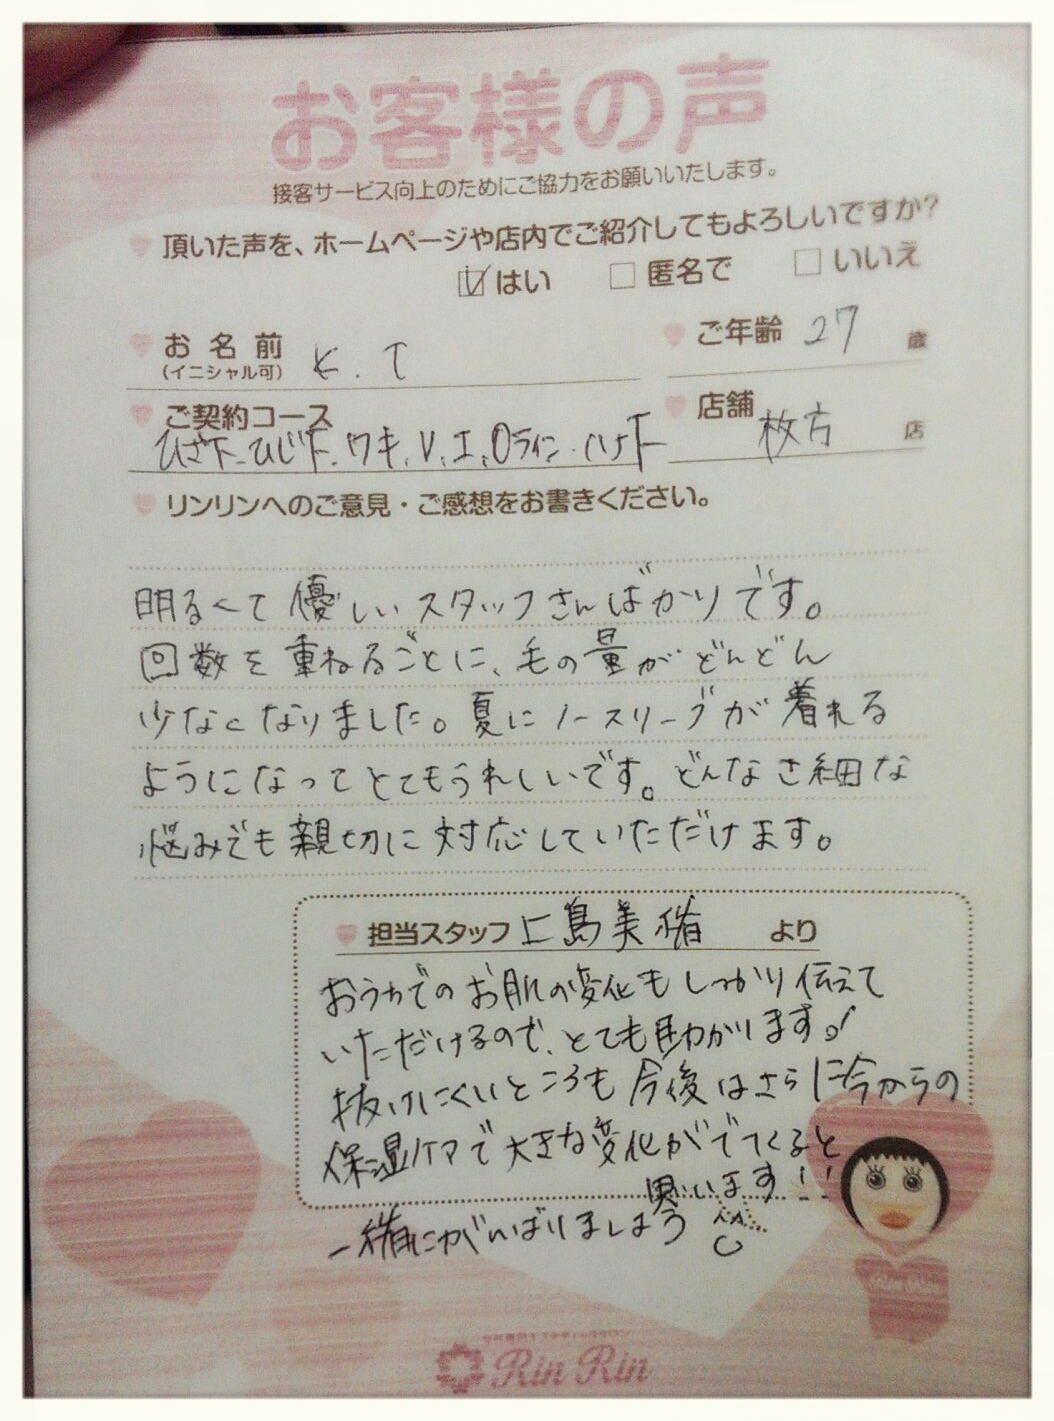 お客様の声
接客サービス向上のためにご協力をお願いいたします。
頂いた声を、ホームページや店内でご紹介してもよろしいですか?
はい 匿名で いいえ
お名前 K.T ご年齢 27 歳
(イニシャル可)
ご契約コース 店舗 枚方 店
ひざ下、ひじ下、ワキ、V、I、Oライン、ハナ下
リンリンへのご意見・ご感想をお書きください。
明るくて優しいスタッフさんばかりです。
回数を重ねるごとに、毛の量がどんどん
少なくなりました。夏にノースリーブが着れる
ようになってとてもうれしいです。どんなさ細な
悩みでも親切に対応していただけます。
担当スタッフ 上島美 より
おうちでのお肌の変化もしっかり伝えて
いただけるので、とても助かります!
抜けにくいところも今後はさらに今からの
保湿ケアで大きな変化がでてくると
思います!!
一緒にがんばりましょう
Rin Rin
Rin Rin